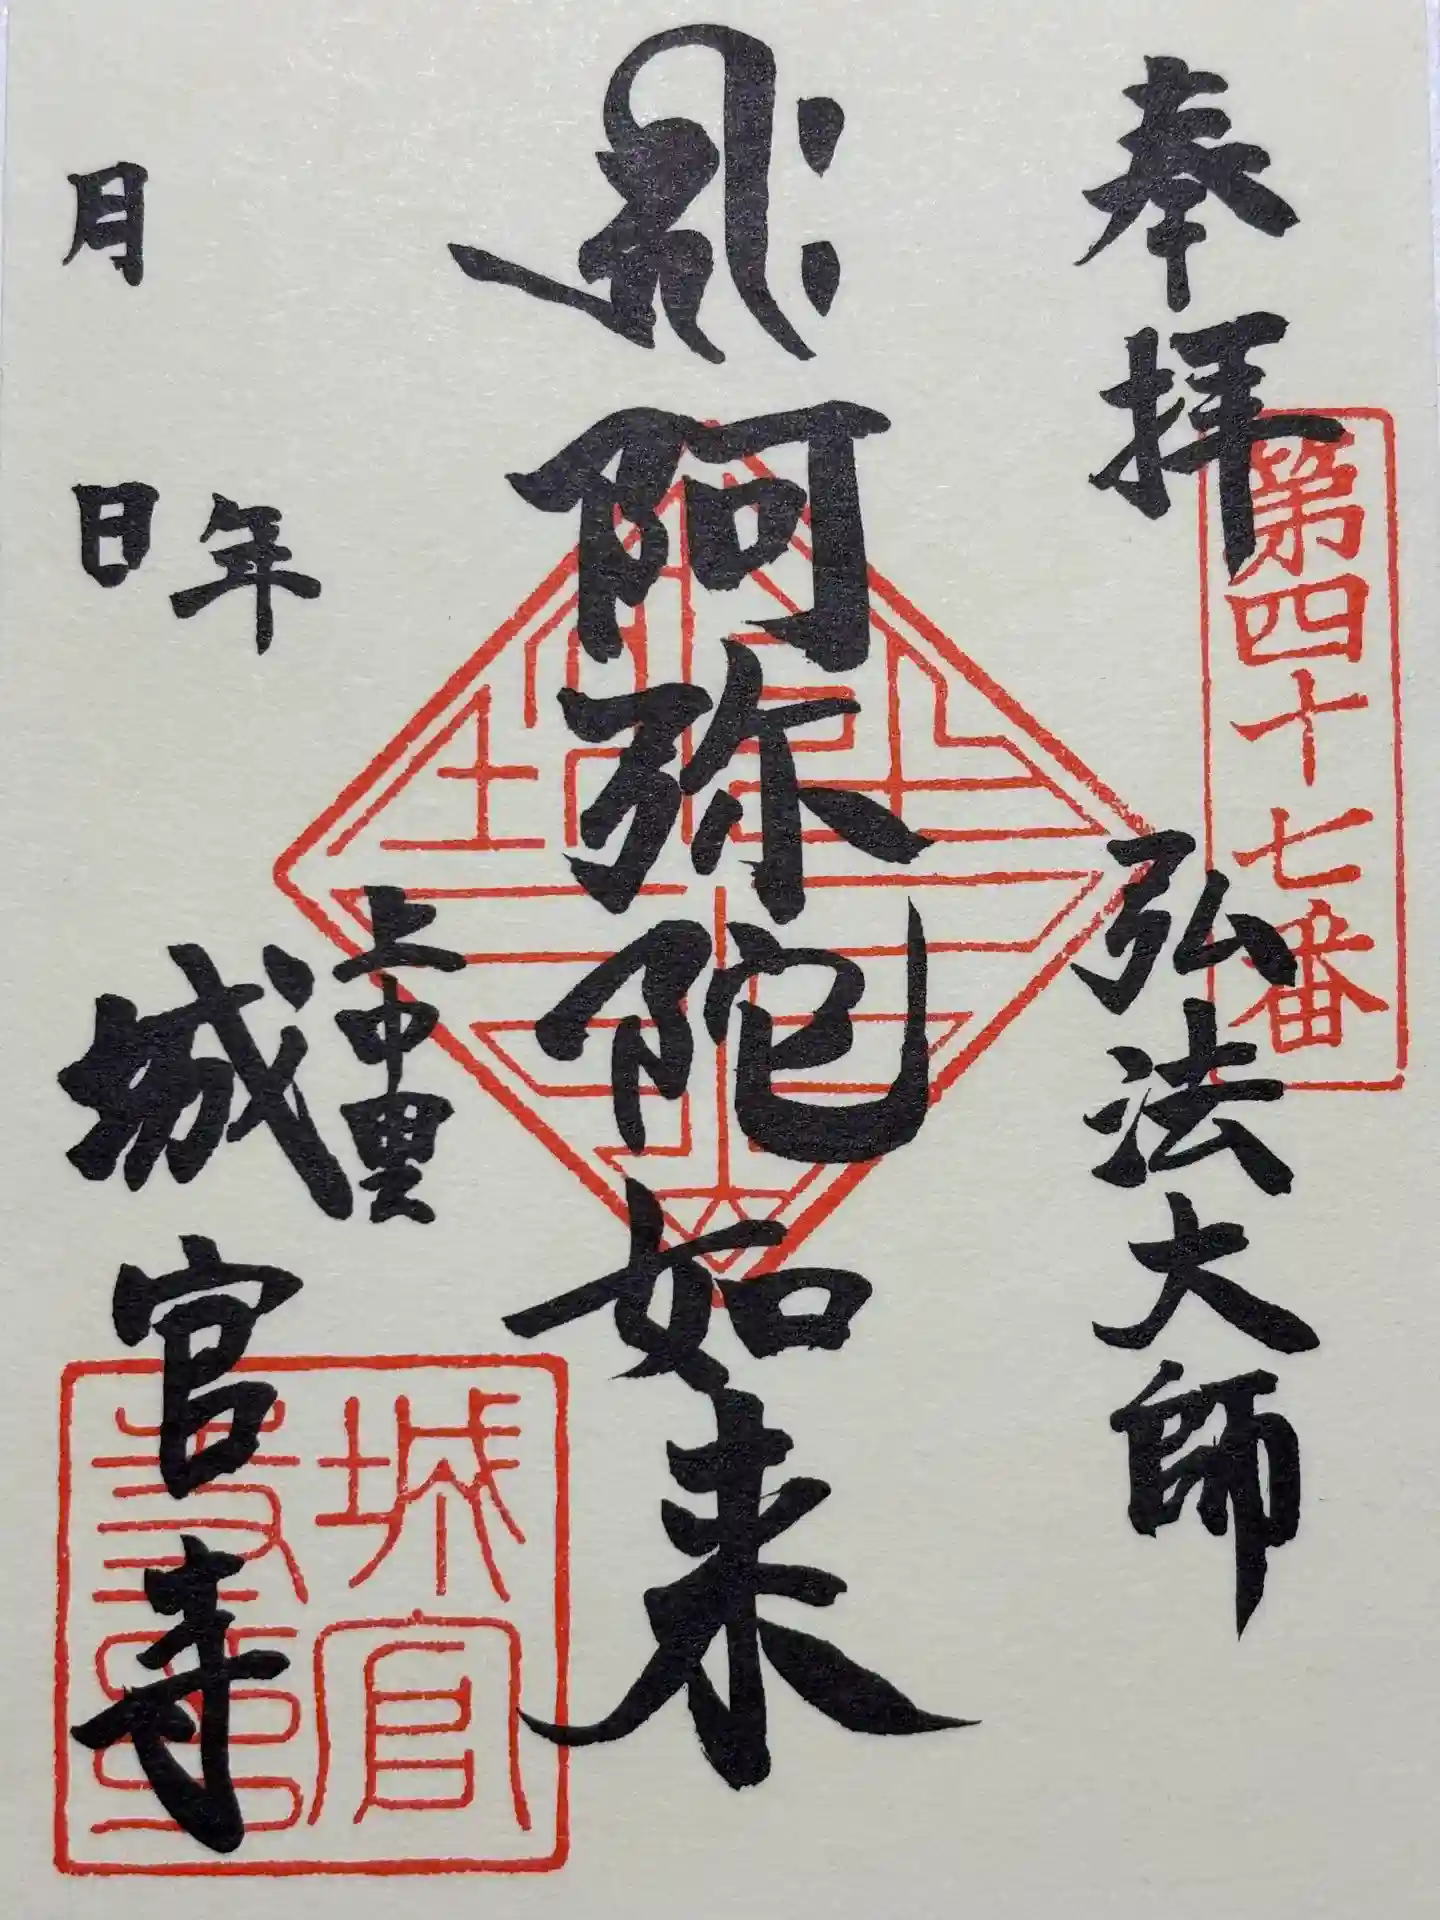 奉拝
第四十七番
弘法大師
阿弥陀如来
上中里
城官寺
年
月
日
城官